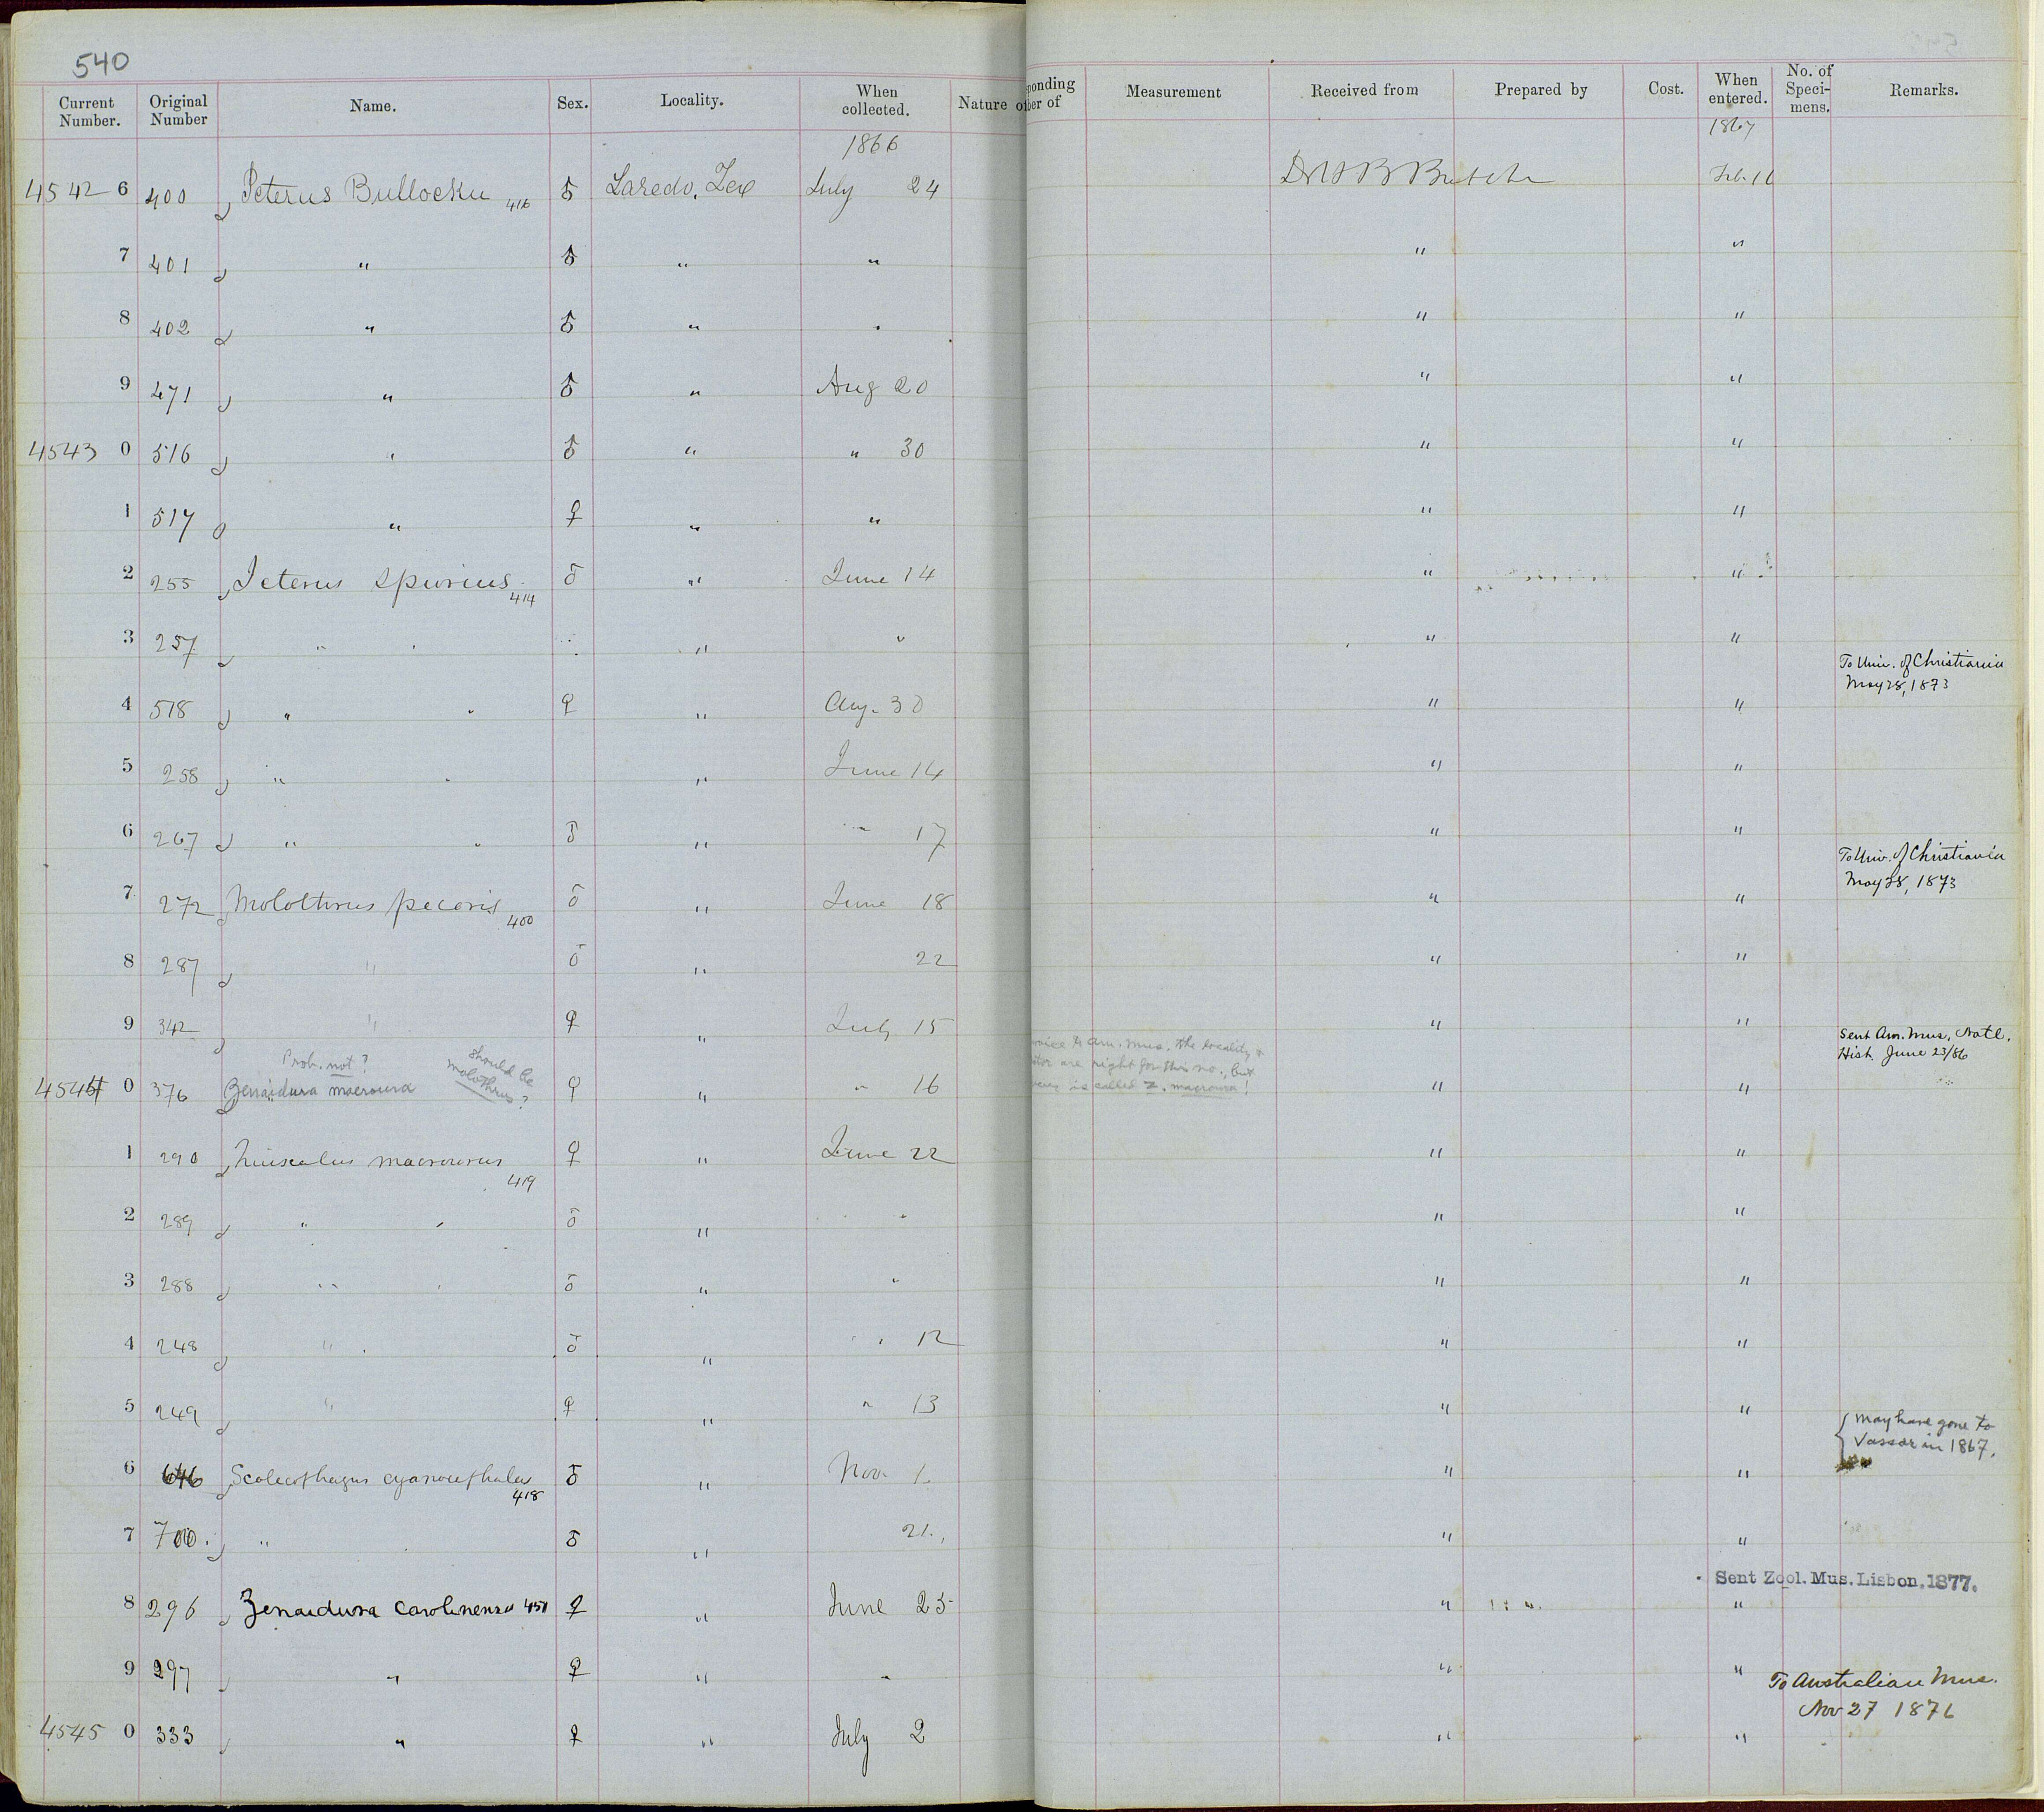 540
Current Number. Original Number Name. Sex. Locality. When collected. Nature of ponding ber of Measurement Received from Prepared by Cost. When entered. No. of Speci- mens. Remarks.
1866 1867
4542 6 400 Icterus Bullockii 416 ♂ Laredo, Tex July 24 Dr H B Butcher Feb. 16
7 401 " ♂ " " " "
8 402 " ♂ " " " "
9 471 " ♂ " Aug 20 " "
4543 0 516 " ♂ " " 30 " "
1 517 " ♀ " " " "
2 255 Icterus spurius 414 ♂ " June 14 " "
3 257 " " " " " "
To Univ. of Christiania
May 28, 1873
4 518 " " ♀ " Aug. 30 " "
5 258 " " " June 14 " "
6 267 " " ♂ " " 17 " "
To Univ. of Christiania
May 28, 1873
7 272 Molothrus pecoris 400 ♂ " June 18 " "
8 287 " ♂ " 22 " "
9 342 " ♀ " July 15 " "
Sent Am. Mus. Natl.
Hist. June 23/86
Prob. not? should be Molothrus?
voice to Am. Mus. the locality &
tor are right for this no., but
is called Z. macroura!
4544 0 376 Zenaidura macroura ♀ " " 16 " "
1 290 Quiscalus macrourus 419 ♀ " June 22 " "
2 289 " " ♂ " " " "
3 288 " " ♂ " " " "
4 248 " ♂ " " 12 " "
5 249 " ♀ " " 13 " "
may have gone to
Vassar in 1867.
6 646 Scolecophagus cyanocephalus 418 ♂ " Nov. 1. " "
7 700. " ♂ " 21. " "
Sent Zool. Mus. Lisbon. 1877.
8 296 Zenaidura carolinensis 451 ♀ " June 25 " "
9 297 " ♀ " " " "
To Australian Mus.
Nov 27 1876
4545 0 333 " ♀ " July 2 " "